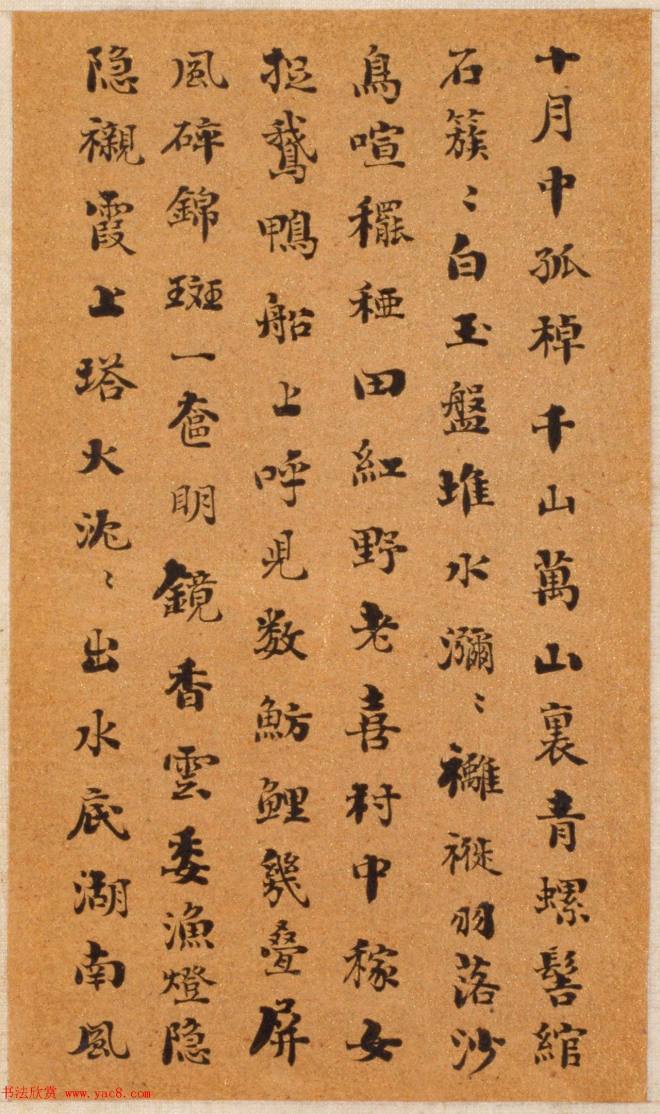 十月中孤棹千山萬山裏青螺髻綰
石簇〻白玉盤堆水瀰〻䙰褷羽落沙
鳥喧䆉稏田紅野老喜村中稼女
捉鵞鴨船上呼兒数魴鯉幾疊屏
風碎錦斑一奩明鏡香雲委漁燈隐
隐襯霞上塔火沉〻出水底湖南風
书法欣赏 www.yac8.com